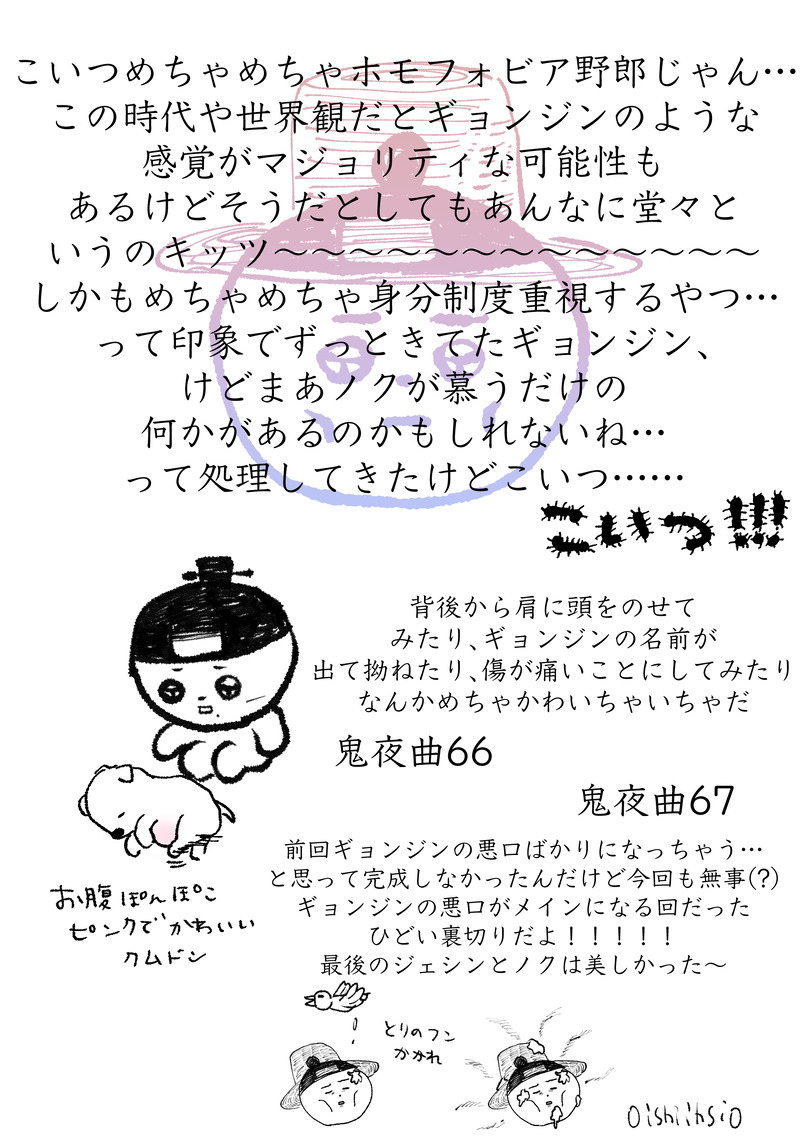 こいつめちゃめちゃホモフォビア野郎じゃん…
この時代や世界観だとギョンジンのような
感覚がマジョリティな可能性も
あるけどそうだとしてもあんなに堂々と
いうのキッツ〜〜〜〜〜〜〜〜〜〜〜〜〜
しかもめちゃめちゃ身分制度重視するやつ…
って印象でずっときてたギョンジン、
けどまあノクが慕うだけの
何かがあるのかもしれないね…
って処理してきたけどこいつ……
こいつ!!!
背後から肩に頭をのせて
みたり、ギョンジンの名前が
出て拗ねたり、傷が痛いことにしてみたり
なんかめちゃかわいちゃいちゃだ
鬼夜曲66
鬼夜曲67
前回ギョンジンの悪口ばかりになっちゃう…
と思って完成しなかったんだけど今回も無事(?)
ギョンジンの悪口がメインになる回だった
ひどい裏切りだよ！！！！！
最後のジェシンとノクは美しかった〜
お腹ぽんぽこ
ピンクでかわいい
クムドン
とりのフン
かかれ
oishiihsio